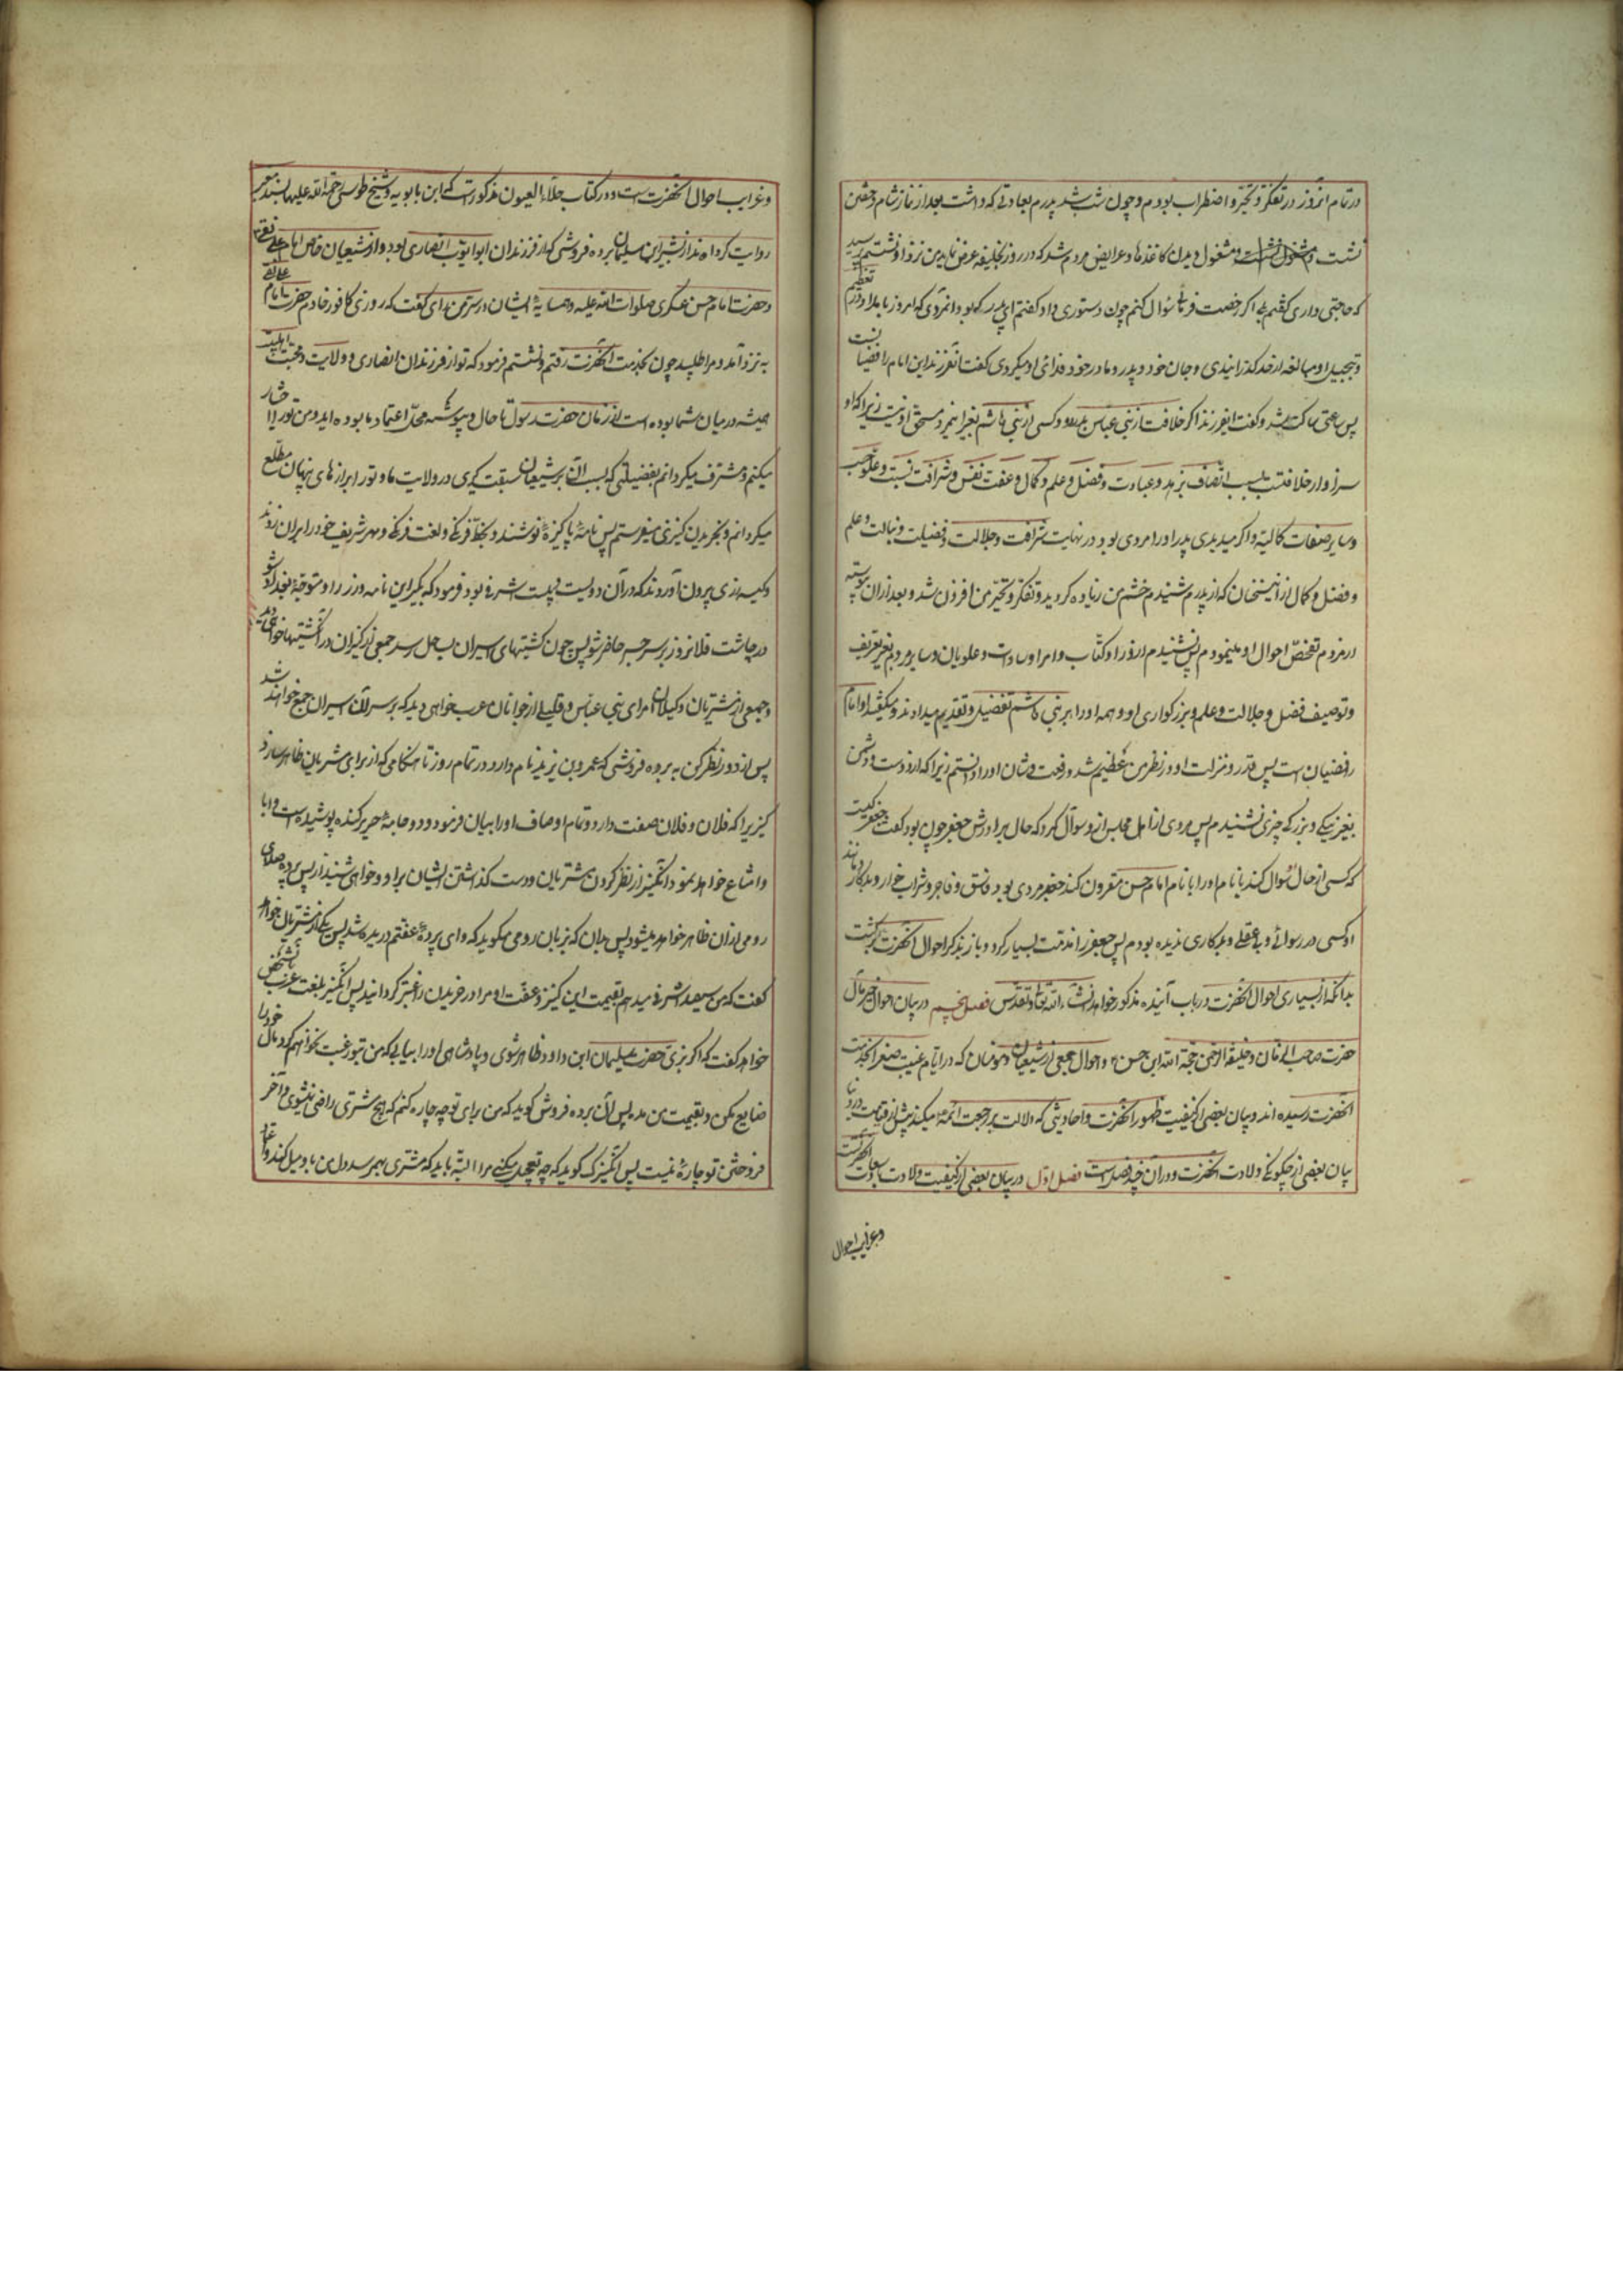 در تمام آنروز در تفکر و تحیر و اضطراب بودم و چون شب شد پدرم بعادتی که داشت بعد از نماز شام و خفتن
نشست و مشغول دیدن کاغذها و عرایض مردم شد که در روز بخلیفه عرض نماید من نزد او نشستم پرسید
که حاجتی داری گفتم بلی اگر رخصت فرمائی سؤال کنم چون دستوری داد گفتم ای پدر که بود آنمردی که امروز بامداد در تعظیم
و تبجیل او مبالغه از حد گذرانیدی و جان خود و پدر و مادر خود فدای او میکردی گفت ای فرزند این امام رافضیانست
پس ساعتی ساکت شد و گفت ای فرزند اگر خلافت از بنی عباس بدر رود کسی از بنی هاشم بغیر اینمرد مستحق آن نیست زیرا که او
سزاوار خلافتست بسبب اتصاف بزهد و عبادت و فضل و علم و کمال و عفت نفس و شرافت نسب و علو حسب
و سایر صفات کمالیه و اگر میدیدی پدر او را مردی بود در نهایت شرافت و جلالت و فضیلت و نبالت و علم
و فضل و کمال از این سخنان که از پدرم شنیدم خشم من زیاده گردید و تفکر و تحیر من افزون شد و بعد از آن پیوسته
از مردم تفحص احوال او مینمودم پس نشنیدم از وزرا و کتاب و امرا و سادات و علویان و سایر مردم بغیر تعریف
و توصیف فضل و جلالت و علم و بزرگواری او و همه او را بر بنی هاشم تفضیل و تقدیم میدادند و میگفتند او امام
رافضیان است پس قدر و منزلت او در نظر من عظیم شد و رفعت و شان او را دانستم زیرا که از دوست و دشمن
بغیر نیکی و بزرگی چیزی نشنیدم پس مردی از اهل مجلس از او سؤال کرد که حال برادرش جعفر چون بود گفت جعفر کیست
که کسی از حال او سؤال کند یا نام او را با نام امام حسن مقرون کند جعفر مردی بود فاسق و فاجر و شراب خوار و بدکار مانند
او کسی در رسوائی و بی عقلی و بدکاری ندیده بودم پس جعفر را مذمت بسیار کرد و باز بذکر احوال آنحضرت برگشت
بدانکه از بسیاری احوال آنحضرت در باب آینده مذکور خواهد شد انشاء الله تعالی و تقدس فصل پنجم در بیان احوال خیر مآل
حضرت صاحب الزمان و خلیفة الرحمن حجة الله ابن حسن و احوال جمعی از شیعیان و مؤمنان که در ایام غیبت صغرا بخدمت
آنحضرت رسیده اند و بیان بعضی از کیفیت ظهور آنحضرت و احادیثی که دلالت بر رجعت ائمه میکند پیش از قیامت در دنیا
بیان بعضی از چگونگی ولادت آنحضرت و در آن چند فصل است فصل اول در بیان بعضی از کیفیت ولادت با سعادت آنحضرت
و غرایب احوال
و غرایب احوال آنحضرت است و در کتاب جلاء العیون مذکور است که ابن بابویه و شیخ طوسی رحمة الله علیهما بسند معتبر
روایت کرده اند از بشیر ابن سلیمان برده فروشی که از فرزندان ابو ایوب انصاری بود و از شیعیان خاص امام علی نقی
و حضرت امام حسن عسکری صلوات الله علیه و همسایه ایشان در سر من رای گفت که روزی کافور خادم حضرت امام علی نقی
به نزد من آمد و مرا طلبید چون بخدمت آنحضرت رفتم و نشستم فرمود که تو از فرزندان انصاری و ولایت و محبت اهلبیت
همیشه در میان شما بوده است از زمان حضرت رسول تا حال و پیوسته محل اعتماد ما بوده اید و من تو را اختیار
میکنم و مشرف میگردانم بفضیلتی که بسبب آن بر شیعیان سبقت گیری در ولایت ما و تو را بر رازهای پنهان مطلع
میگردانم و بخریدن کنیزی میفرستم پس نامهٔ پاکیزهٔ نوشتند و بخط فرنگی و لغت فرنگی و مهر شریف خود را بر آن زدند
و کیسه زری بیرون آوردند که در آن دویست و بیست اشرفی بود فرمود که بگیر این نامه و زر را و متوجه بغداد شو
در چاشت فلان روز بر سر جسر حاضر شو پس چون کشتیهای اسیران بساحل رسد جمعی از کنیزان در آن کشتیها خواهی دید
و جمعی از مشتریان و وکیلان امرای بنی عباس و قلیلی از جوانان عرب خواهی دید که بر سر آن اسیران جمع خواهند شد
پس از دور نظر کن به برده فروشی که عمرو بن یزید نام دارد در تمام روز تا هنگامی که از برای مشتریان ظاهر سازد
کنیزیرا که فلان و فلان صفت دارد و تمام اوصاف او را بیان فرمود و دو جامهٔ حریر کنده پوشیده است و ابا
و امتناع خواهد نمود آن کنیز از نظر کردن مشتریان و دست گذاشتن ایشان بر او و خواهی شنید از پس پرده صدای
رومی از آن ظاهر خواهد میشود پس بدان که بزبان رومی میگوید که وای پردهٔ عفتم دریده شد پس یکی از مشتریان خواهد
گفت که من سیصد اشرفی میدهم بقیمت این کنیز و عفت او مرا در خریدن راغبتر گردانید پس آن کنیز بلغت عرب باتشخص
خواهد گفت که اگر بزی حضرت سلیمان ابن داود ظاهر شوی و پادشاهی او را بیابی که من بتو رغبت نخواهم کرد مال خود را
ضایع مکن و بقیمت من مده پس آن برده فروش گوید که من برای تو چه چاره کنم که بهیچ مشتری راضی نمیشوی و آخر
از فروختن تو چارهٔ نیست پس آن کنیزک گوید که چه تعجیل میکنی مرا البته باید که مشتری بهم رسد و دل من باو میل کند